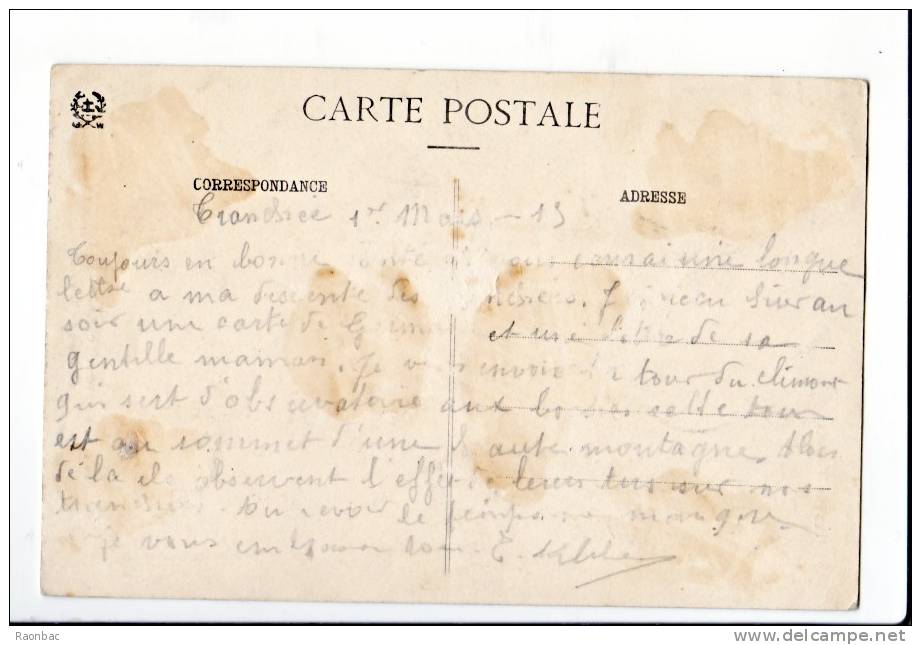 CARTE POSTALE
CORRESPONDANCE
ADRESSE
Tranchée 1er Mars - 15
Toujours en bonne santé une longue
lettre a ma descente des tranchées. J'ai recu hier au
soir une carte de et une lettre de sa
gentille maman. Je vous envoie la tour du climont
qui sert d'observatoire aux boches cette tour
est au sommet d'une haute montagne.
de la ils observent l'effet de leurs tirs sur nos
tranchées. Au revoir le temps me manque
je vous embrasse tous E.
Raonbac
www.delcampe.net